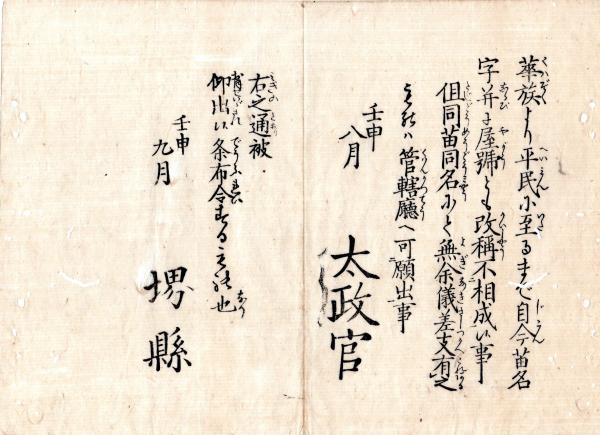 華族より平民に至るまで自今苗名
字并ニ屋號とも改稱不相成候事
但同苗同名にて無余儀差支有之
者ハ管轄廳へ可願出事
壬申
八月
太政官
右之通被
仰出候条布令するもの也
壬申
九月
堺縣